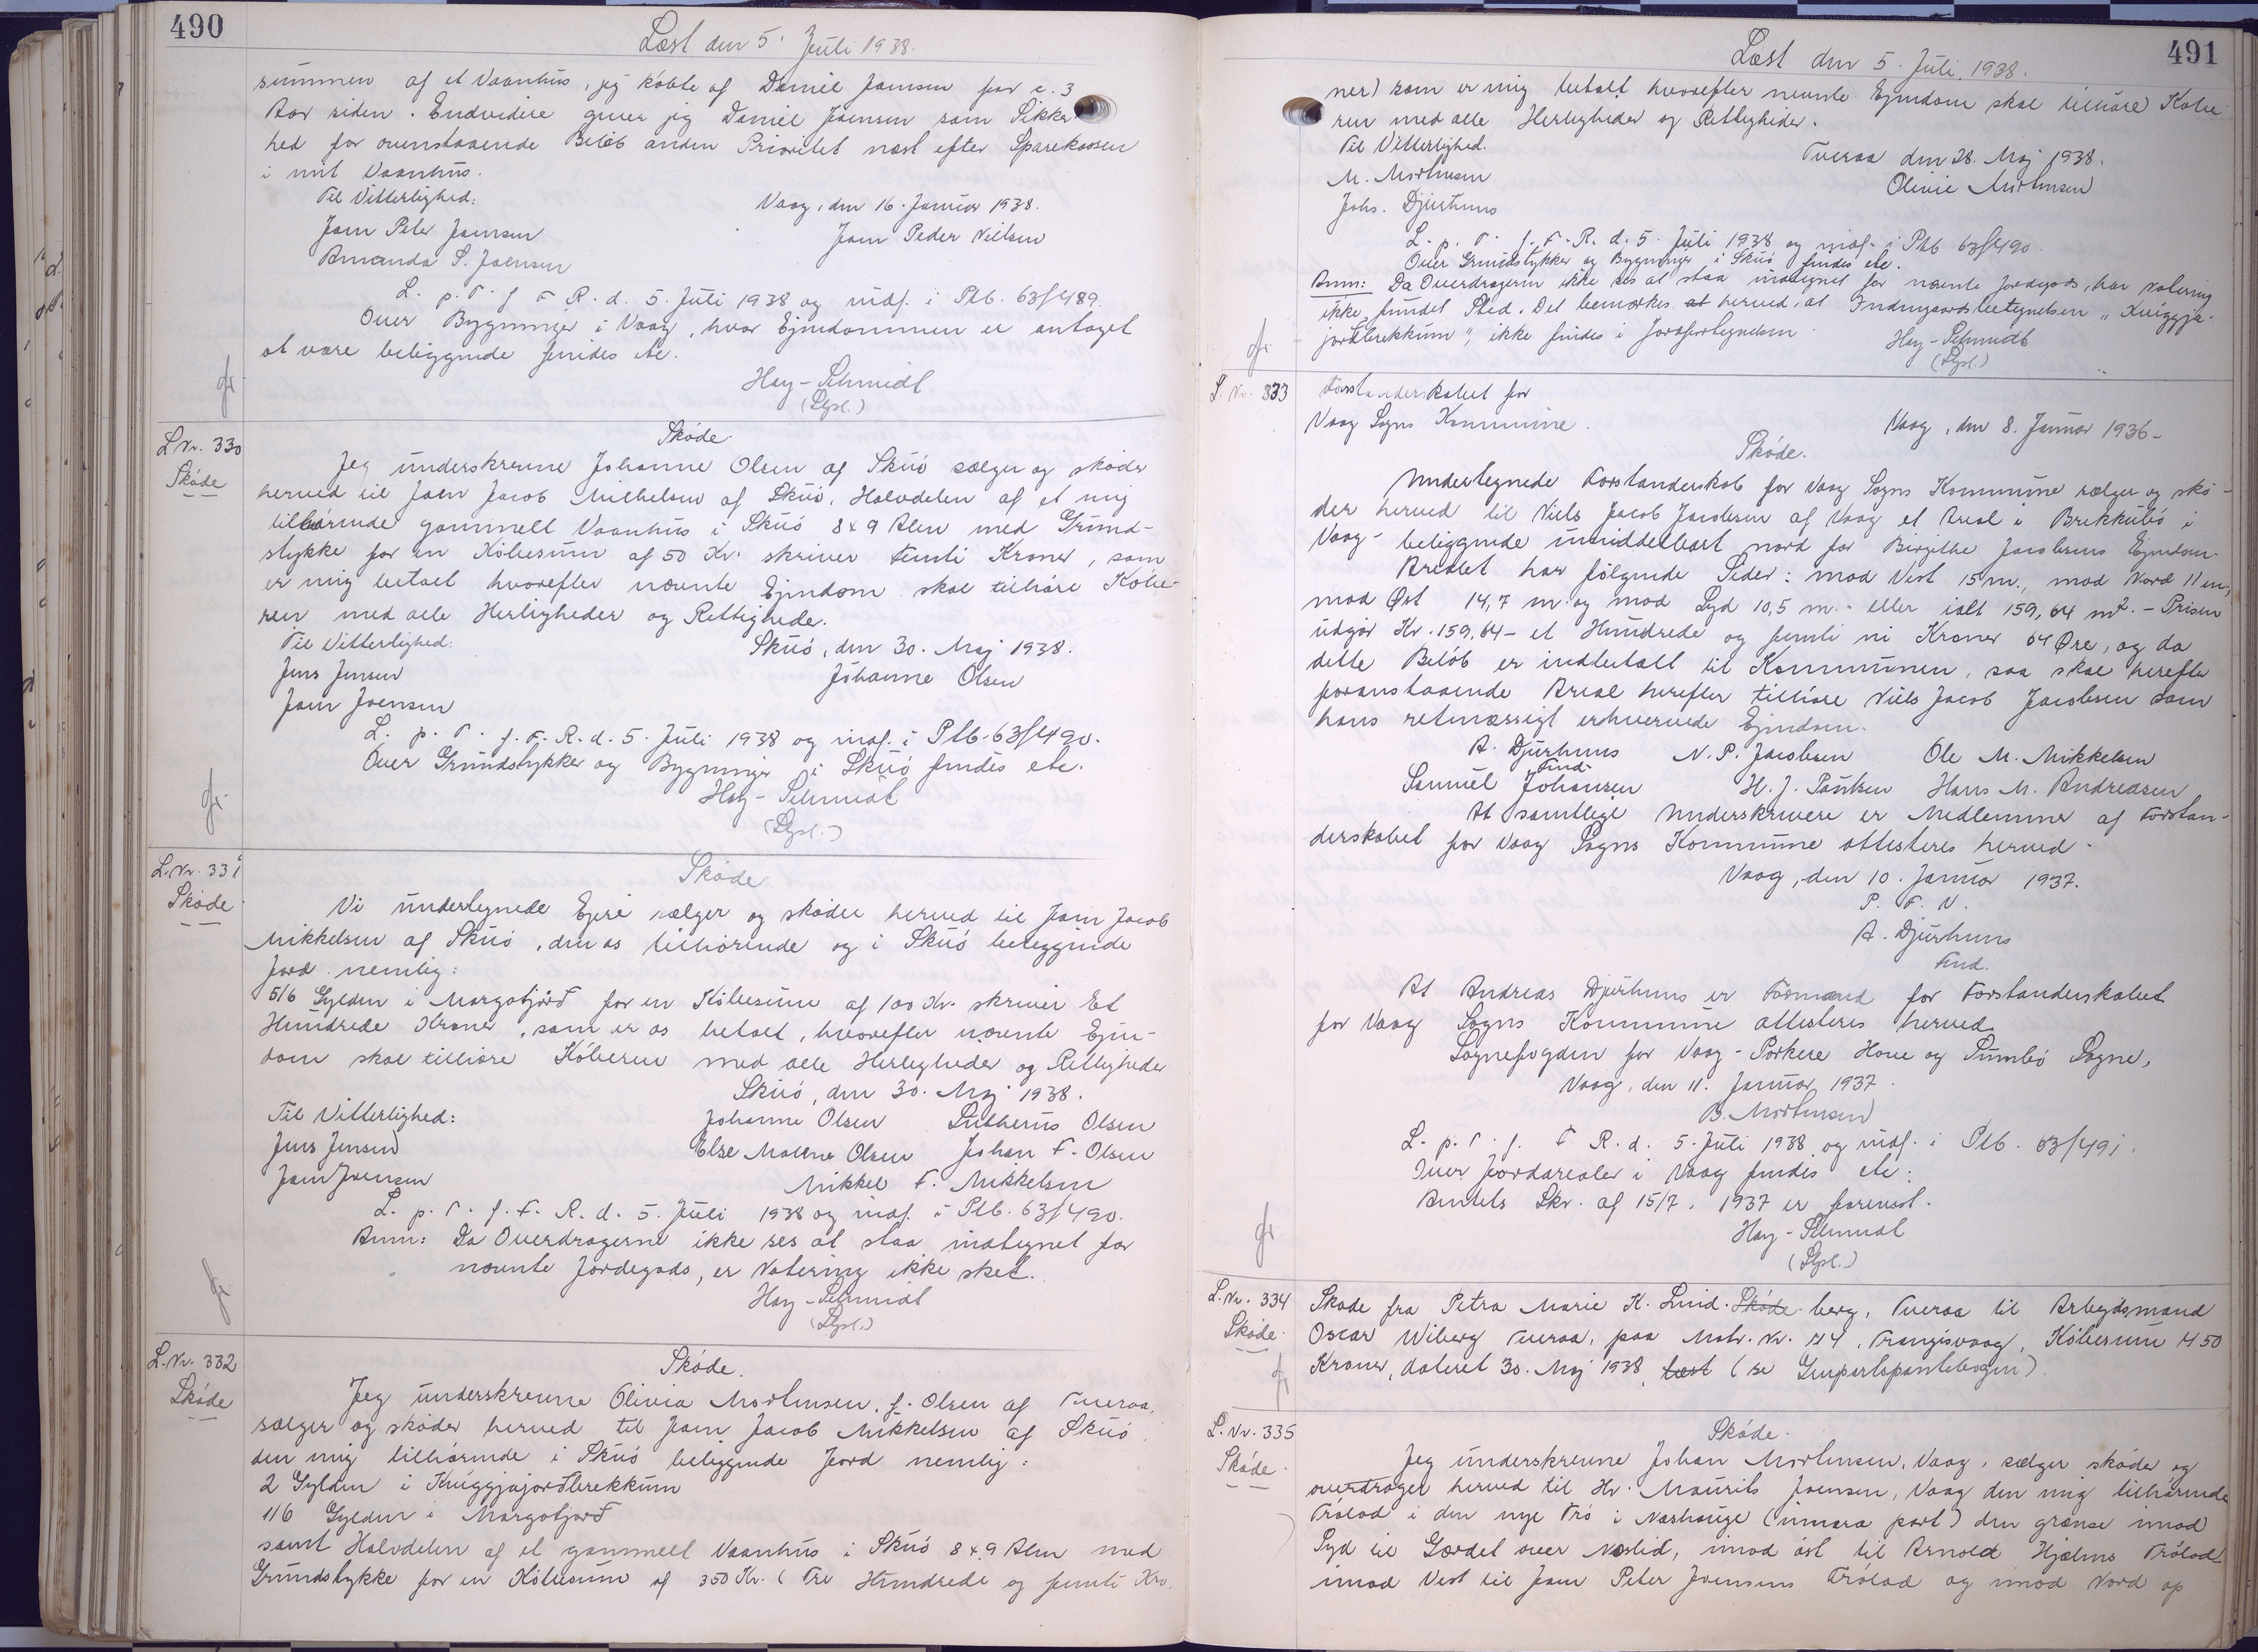 490
Læst den 5. Juli 1938.
summen af et Vaanhus, jeg købte af Daniel Joensen for c. 3
Aar siden. Endvidere giver jeg Daniel Joensen som Sikker
hed for ovenstaaende Beløb anden Prioritet næst efter Sparekassen
i mit Vaanhus.
Til Vitterlighed: Vaag, den 16. Januar 1938.
Joen Peter Joensen Joen Peder Nielsen
Amanda S. Joensen
L. p. T. f. F. R. d. 5. Juli 1938 og indf. i Ptb. 63f489.
Over Bygninger i Vaag, hvor Ejendommen er antaget
at være beliggende findes etc.
Hay-Schmidt
(Dpsl.)
L. Nr. 330
Skøde
Skøde
Jeg underskrevne Johanne Olsen af Skuø sælger og skøder
herved til Joen Jacob Mikkelsen af Skuø, Halvdelen af et mig
tilhørende gammelt Vaanhus i Skuø 8 x 9 Alen med Grund-
stykke for en Købesum af 50 Kr. skriver Femti Kroner, som
er mig betalt hvorefter nævnte Ejendom skal tilhøre Købe-
ren med alle Herligheder og Rettigheder.
Til Vitterlighed: Skuø, den 30. Maj 1938.
Jens Jensen Johanne Olsen
Joen Joensen
L. p. T. f. F. R. d. 5. Juli 1938 og indf. i Ptb. 63f490.
Over Grundstykker og Bygninger i Skuø findes etc.
Hay-Schmidt
(Dpsl.)
L. Nr. 331
Skøde
Skøde
Vi undertegnede Ejere sælger og skøder herved til Joen Jacob
Mikkelsen af Skuø, den os tilhørende og i Skuø beliggende
Jord nemlig:
5/6 Gylden i Morgotjørð for en Købesum af 100 Kr. skriver Et
Hundrede Kroner, som er os betalt, hvorefter nævnte Ejen-
dom skal tilhøre Køberen med alle Herligheder og Rettigheder
Skuø, den 30. Maj 1938.
Til Vitterlighed: Johanne Olsen Lutherus Olsen
Jens Jensen Else Malene Olsen Johan F. Olsen
Joen Joensen Mikkel F. Mikkelsen
L. p. T. f. F. R. d. 5. Juli 1938 og indf. i Ptb. 63f490.
Anm: Da Overdragerne ikke ses at staa indtegnet for
nævnte Jordegods, er Notering ikke sket.
Hay-Schmidt
(Dpsl.)
L. Nr. 332
Skøde
Skøde.
Jeg underskrevne Olivia Mortensen, f. Olsen af Tveraa,
sælger og skøder herved til Joen Jacob Mikkelsen af Skuø
den mig tilhørende i Skuø beliggende Jord nemlig:
2 Gylden i Kniggjajorðbrekkum
1/6 Gylden i Morgotjørð
samt Halvdelen af et gammelt Vaanhus i Skuø 8 x 9 Alen med
Grundstykke for en Købesum af 350 Kr. (Tre Hundrede og femti Kro-
491
Læst den 5. Juli 1938.
ner) som er mig betalt hvorefter nævnte Ejendom skal tilhøre Købe
ren med alle Herligheder og Rettigheder.
Til Vitterlighed. Tveraa den 28. Maj 1938.
M. Mortensen Olivie Mortensen
Johs. Djurhuus
L. p. T. f. F. R. d. 5. Juli 1938 og indf. i Ptb 63f490.
Over Grundstykker og Bygninger i Skuø findes etc.
Anm: Da Overdrageren ikke ses at staa indtegnet for nævnte Jordegods, har Notering
ikke fundet Sted. Det bemærkes at herved, at Indmarksbetegnelsen "Kniggja-
jorðbrekkum", ikke findes i Jordfortegnelsen.
Hay-Schmidt
(Dpsl.)
L. Nr. 333
Forstanderskabet for
Vaag Sogns Kommune. Vaag, den 8. Januar 1936-
Skøde.
Undertegnede Forstanderskab for Vaag Sogns Kommune sælger og skø-
der herved til Niels Jacob Jacobsen af Vaag et Areal i Brekkubø i
Vaag- beliggende umiddelbart nord for Birgithe Jacobsens Ejendom.
Arealet har følgende Sider: mod Vest 15 m., mod Nord 11 m,
mod Øst 14,7 m og mod Syd 10,5 m.- eller ialt 159,64 m². - Prisen
udgør Kr. 159,64- et Hundrede og femti ni Kroner 64 Øre, og da
dette Beløb er indbetalt til Kommunen, saa skal herefter
foranstaaende Areal herefter tilhøre Niels Jacob Jacobsen som
hans retmæssigt erhvervede Ejendom.
A. Djurhuus N. P. Jacobsen Ole M. Mikkelsen
Fmd.
Samuel Johansen H. J. Poulsen Hans M. Andreasen
At samtlige Underskrivere er Medlemmer af Forstan-
derskabet for Vaag Sogns Kommune attesteres herved-
Vaag, den 10. Januar 1937.
P. F. V.
A. Djurhuus
Fmd.
At Andreas Djurhuus er Formand for Forstanderskabet
for Vaag Sogns Kommune attesteres herved.
Sognefogden for Vaag-Porkere Hove og Sumbø Sogne,
Vaag, den 11. Januar 1937.
B. Mortensen
L. p. T. f. F. R. d. 5. Juli 1938 og indf. i Ptb. 63f491.
Over Jordarealer i Vaag findes etc:
Amtets Skr. af 15/7. 1937 er forevist.
Hay-Schmidt
(Dpsl.)
L. Nr. 334
Skøde
Skøde fra Petra Marie K. Lind- Skøde berg, Tveraa til Arbejdsmand
Oscar Wiberg Tveraa, paa Matr. Nr. 44, Trangisvaag, Købesum 450
Kroner, dateret 30. Maj 1938, læst (se Genpartspantebogen).
L. Nr. 335
Skøde
Skøde.
Jeg underskrevne Johan Mortensen, Vaag, sælger skøder og
overdrager herved til Hr. Maurits Joensen, Vaag den mig tilhørende
Trölad i den nye Trö i Nashauge (innara part) den grænse imod
Syd til Gærdet over Noslid, imod øst til Arnold Hjelms Trölad
imod Vest til Joen Peter Joensens Trölad og imod Nord op